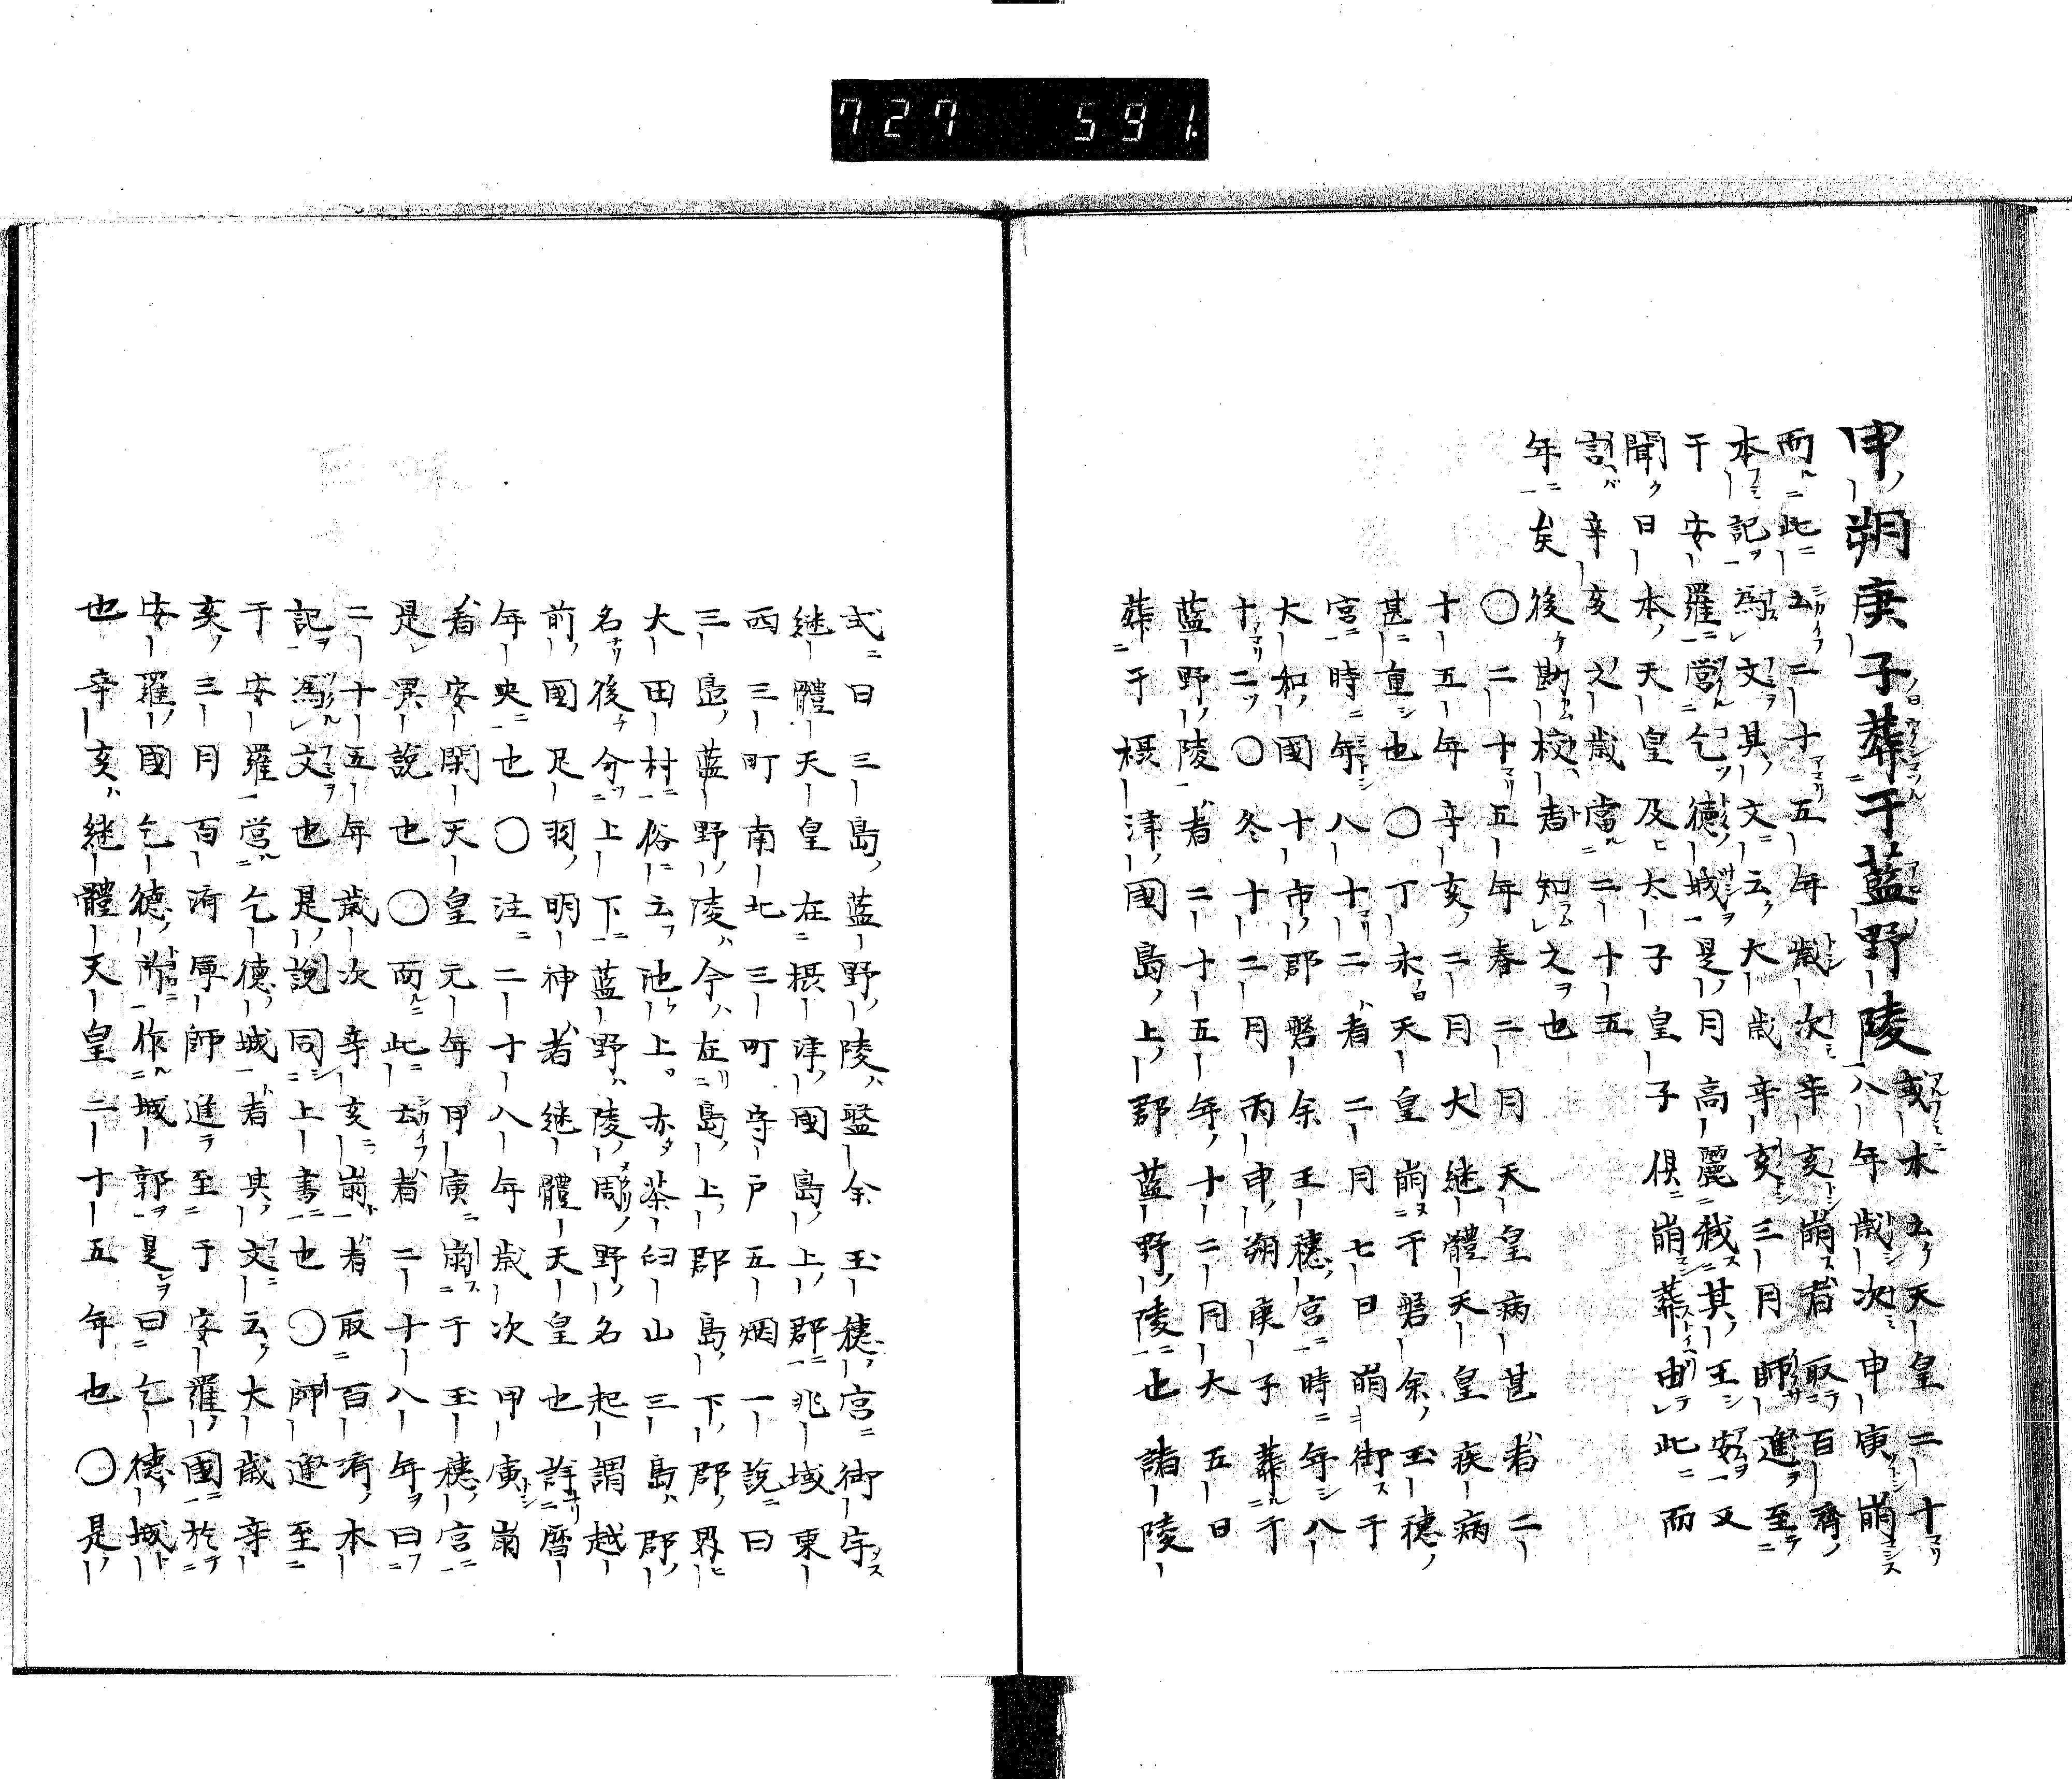 727 591.
申朔庚子葬于藍野陵
或本云天皇二十
八年歳次申庚崩
而此云二十五年歳次辛亥崩者取百濟
本記爲文其文云大歳辛亥三月師進至
于安羅営乞德城是月高麗弒其王安又
聞日本天皇及太子皇子倶崩葬由此而
言辛亥之歳當二十五
年矣後勘校者知之也
〇二十五年春二月天皇病甚者二
十五年辛亥二月大継體天皇疾病
甚重也〇丁未天皇崩于磐余玉穂
宮時年八十二者二月七日崩御于
大和國十市郡磐余玉穂宮時年八
十二〇冬十二月丙申朔庚子葬于
藍野陵者二十五年十二月大五日
葬于摂津國島上郡藍野陵也諸陵
式曰三島藍野陵盤余玉穂宮御宇
継體天皇在摂津國島上郡兆域東
西三町南北三町守戸五烟一説曰
三島藍野陵今在島上郡島下郡界
大田村俗云池上亦茶臼山三島郡
名後分上下藍野陵周野名起謂越
前國足羽明神者継體天皇也詳暦
年央也〇注二十八年歳次甲寅崩
者安閑天皇元年甲寅崩于玉穂宮
是異說也〇而此云者二十八年曰
二十五年歳次辛亥崩者取百濟本
記爲文也是說同上書也〇師進至
于安羅営乞德城者其文云大歳辛
亥三月百濟軍師進至于安羅國於
安羅國乞德所作城郭是曰乞德城
也辛亥継體天皇二十五年也〇是